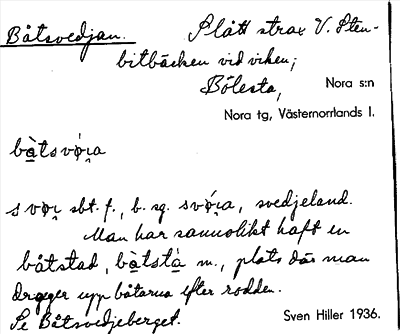 Båtsvedjan. Slått strax V. Sten-
bitbäcken vid viken;
Bölesta, Nora s:n
Nora tg, Västernorrlands l.
bàtsvǿ̣ra
svør sbt. f., b. sg. svǿ̣ra, svedjeland.
Man har sannolikt haft en
båtstad, bàtstà m., plats där man
drager upp båtarna efter rodden.
Se Båtsvedjeberget. Sven Hiller 1936.